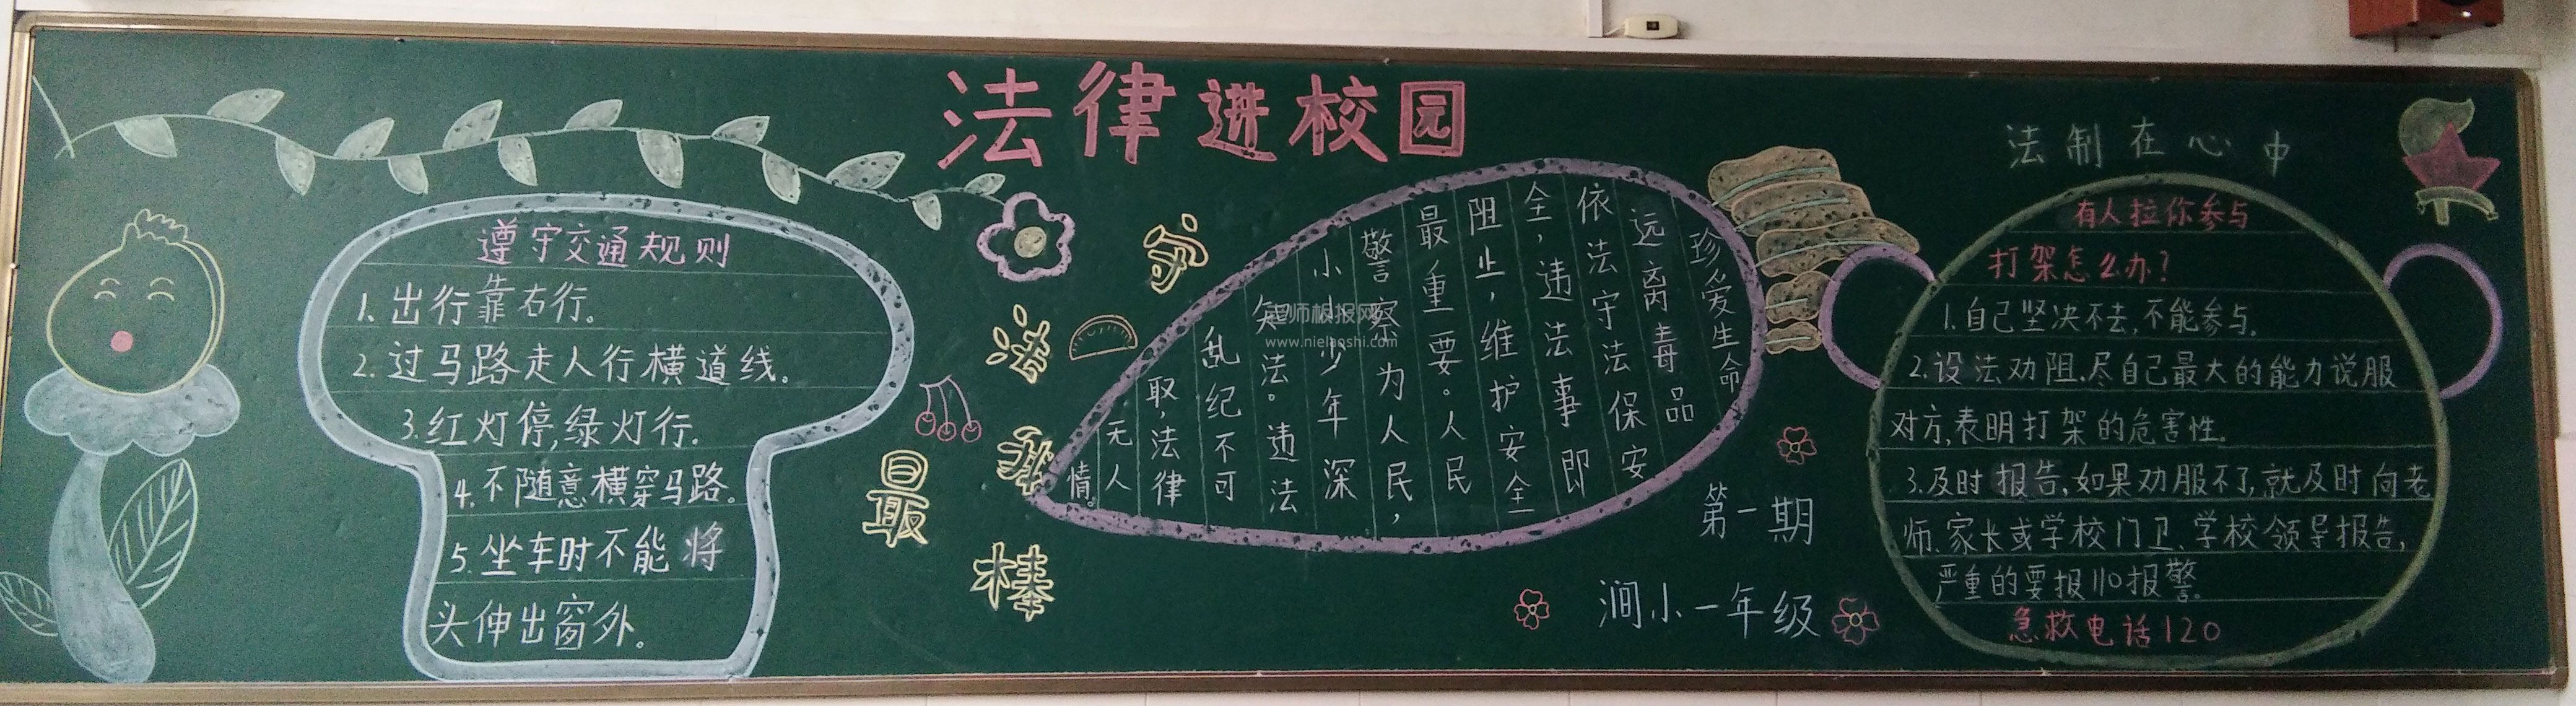 法律进校园
遵守交通规则
1. 出行靠右行。
2. 过马路走人行横道线。
3. 红灯停,绿灯行.
4. 不随意横穿马路。
5. 坐车时不能将
头伸出窗外。
守
法
我
最
棒
珍爱生命
远离毒品
依法守法保安
全，违法事即
阻止，维护安全
最重要。人民
警察为人民，
小小少年深
知法。违法
乱纪不可
取，法律
无人
情。
师板报网
www.nielaoshi.com
第一期
涧小一年级
法制在心中
有人拉你参与
打架怎么办?
1. 自己坚决不去,不能参与.
2. 设法劝阻.尽自己最大的能力说服
对方,表明打架的危害性。
3. 及时报告,如果劝服不了,就及时向老
师、家长或学校门卫、学校领导报告,
严重的要报110报警。
急救电话120